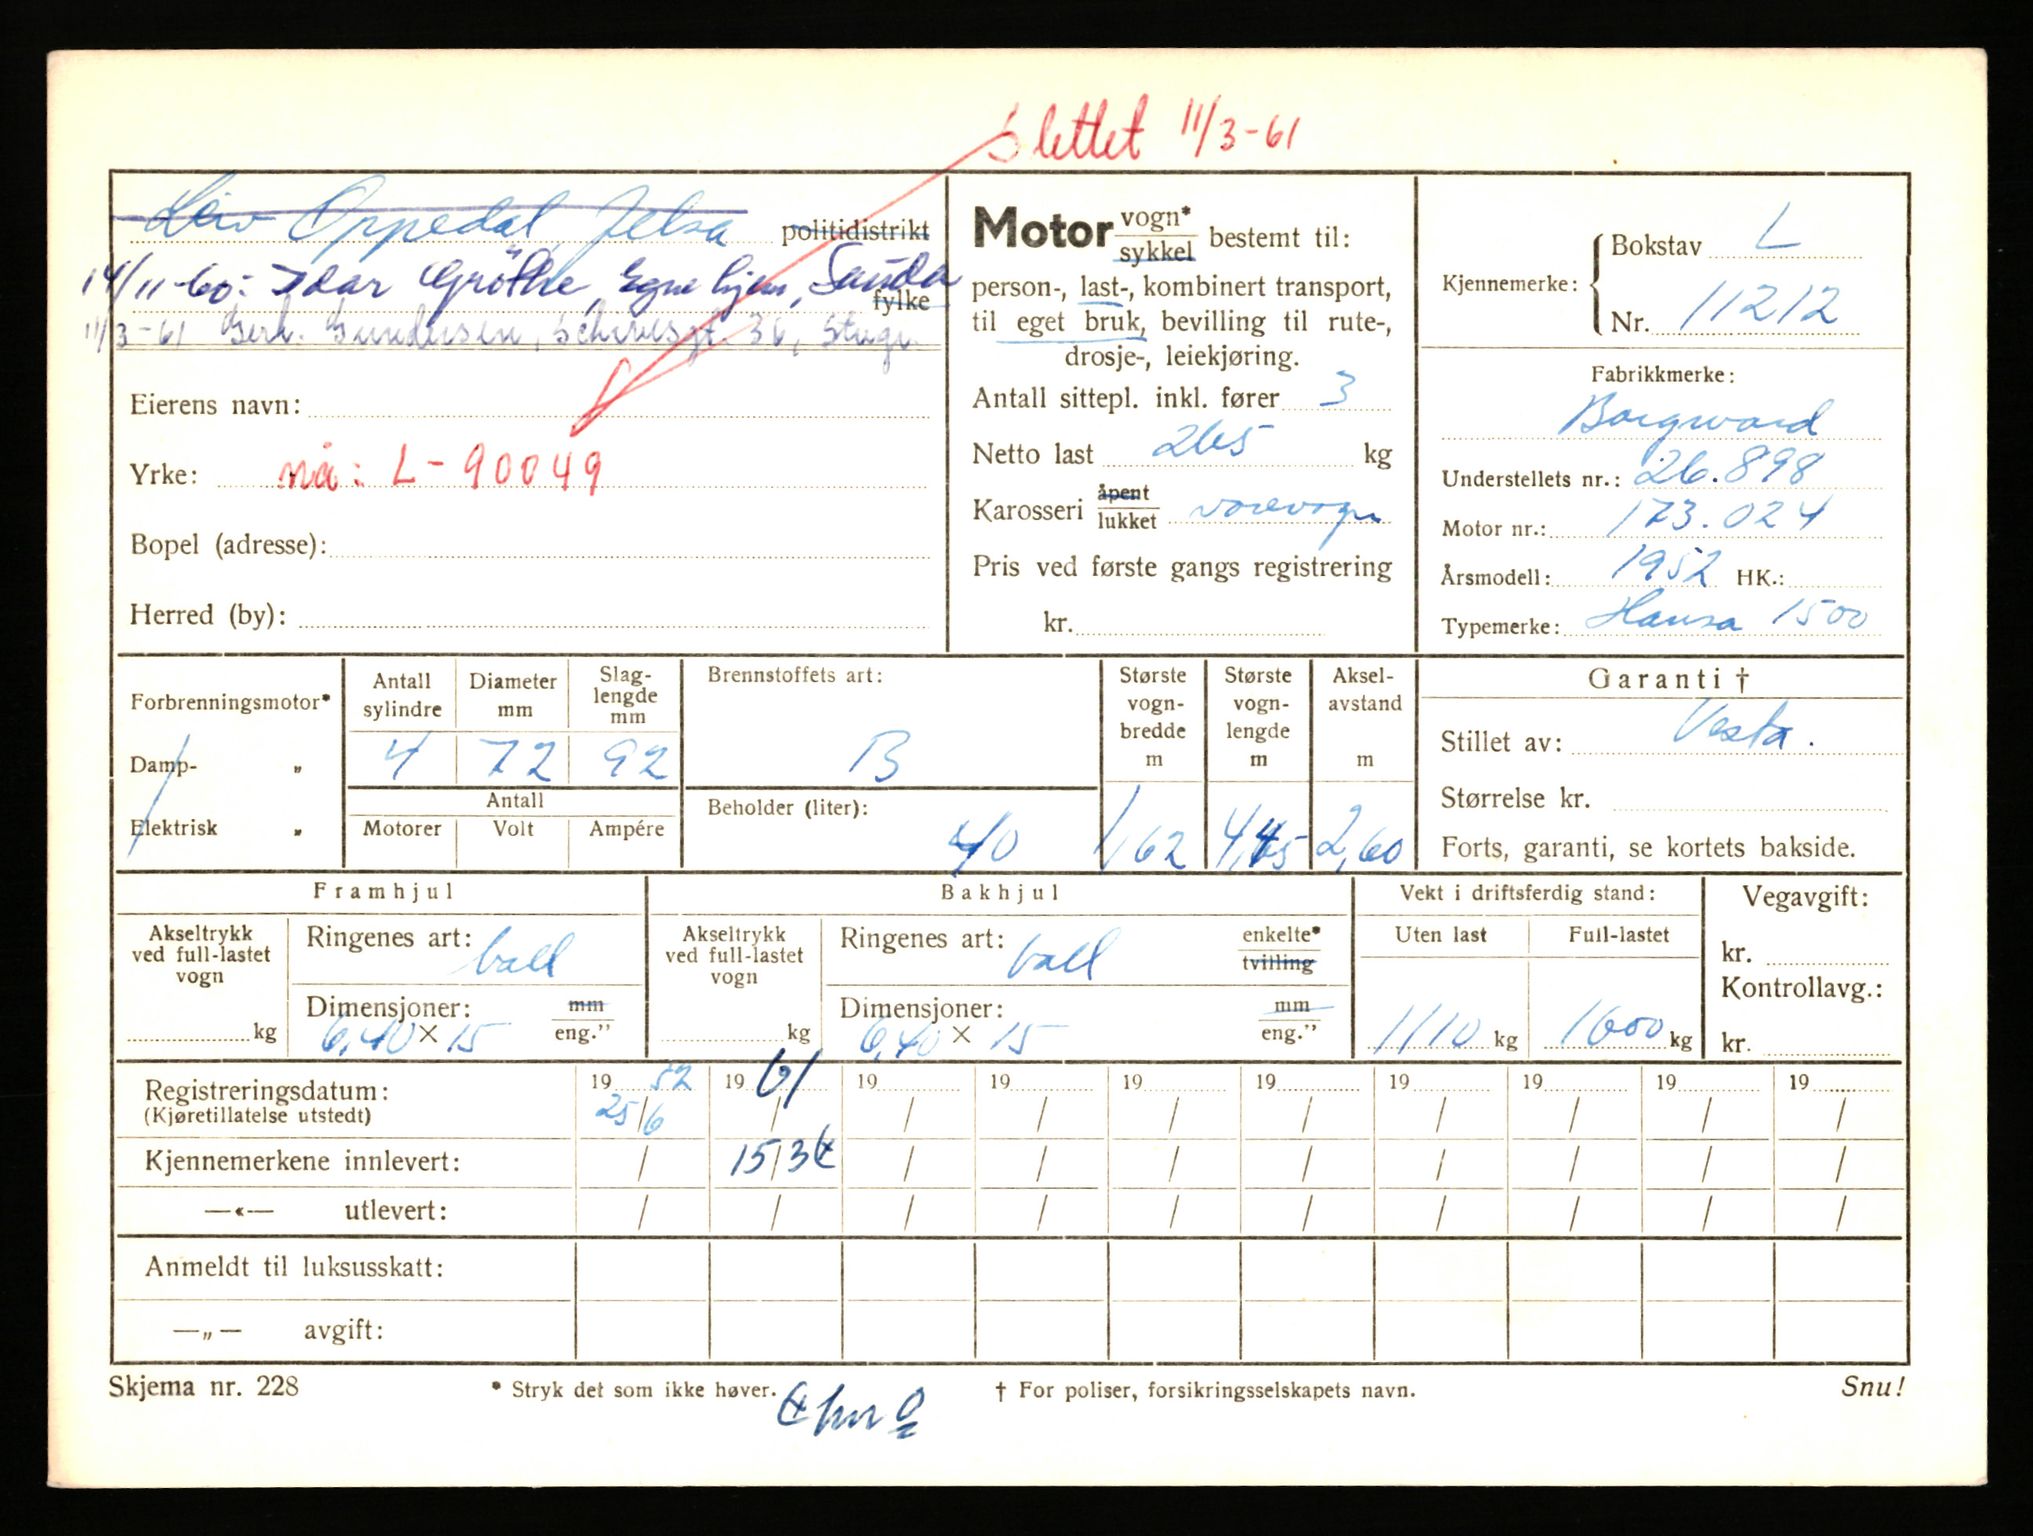 Slettet 11/3-61
Leiv Oppedal, Jelsa politidistrikt
14/11-60: Idar Grøthe, Egne hjem, Sauda
fylke
11/3-61 Gerh. Gundersen, Schivesgt. 36, Stvgr.
Eierens navn:
Yrke: nå: L-90049
Bopel (adresse):
Herred (by):
Motor vogn* / sykkel bestemt til:
person-, last-, kombinert transport,
til eget bruk, bevilling til rute-,
drosje-, leiekjøring.
Antall sittepl. inkl. fører 3
Netto last 265 kg
Karosseri åpent / lukket varevogn
Pris ved første gangs registrering
kr.
Kjennemerke: Bokstav L
Nr. 11212
Fabrikkmerke:
Borgward
Understellets nr.: 26.898
Motor nr.: 173.024
Årsmodell: 1952 HK.:
Typemerke: Hansa 1500
Forbrenningsmotor*
Damp- „
Elektrisk „
Antall sylindre 4
Diameter mm 72
Slag-lengde mm 92
Antall
Motorer Volt Ampére
Brennstoffets art:
B
Beholder (liter):
40
Største vogn-bredde m 1,62
Største vogn-lengde m 4,45
Aksel-avstand m 2,60
Garanti †
Stillet av: Vesta.
Størrelse kr.
Forts, garanti, se kortets bakside.
Framhjul
Akseltrykk ved full-lastet vogn
kg
Ringenes art: ball
Dimensjoner: mm / eng."
6,40 × 15
Bakhjul
Akseltrykk ved full-lastet vogn
kg
Ringenes art: ball enkelte* / tvilling
Dimensjoner: mm / eng."
6,40 × 15
Vekt i driftsferdig stand:
Uten last Full-lastet
1110 kg 1600 kg
Vegavgift:
kr.
Kontrollavg.:
kr.
Registreringsdatum: 19 52 19 61 19 19 19 19 19 19 19 19
(Kjøretillatelse utstedt) 25/6 / / / / / / / / /
Kjennemerkene innlevert: / 15/3 / / / / / / / /
—«— utlevert: / / / / / / / / / /
Anmeldt til luksusskatt:
—„— avgift:
Skjema nr. 228 * Stryk det som ikke høver. † For poliser, forsikringsselskapets navn. Snu!